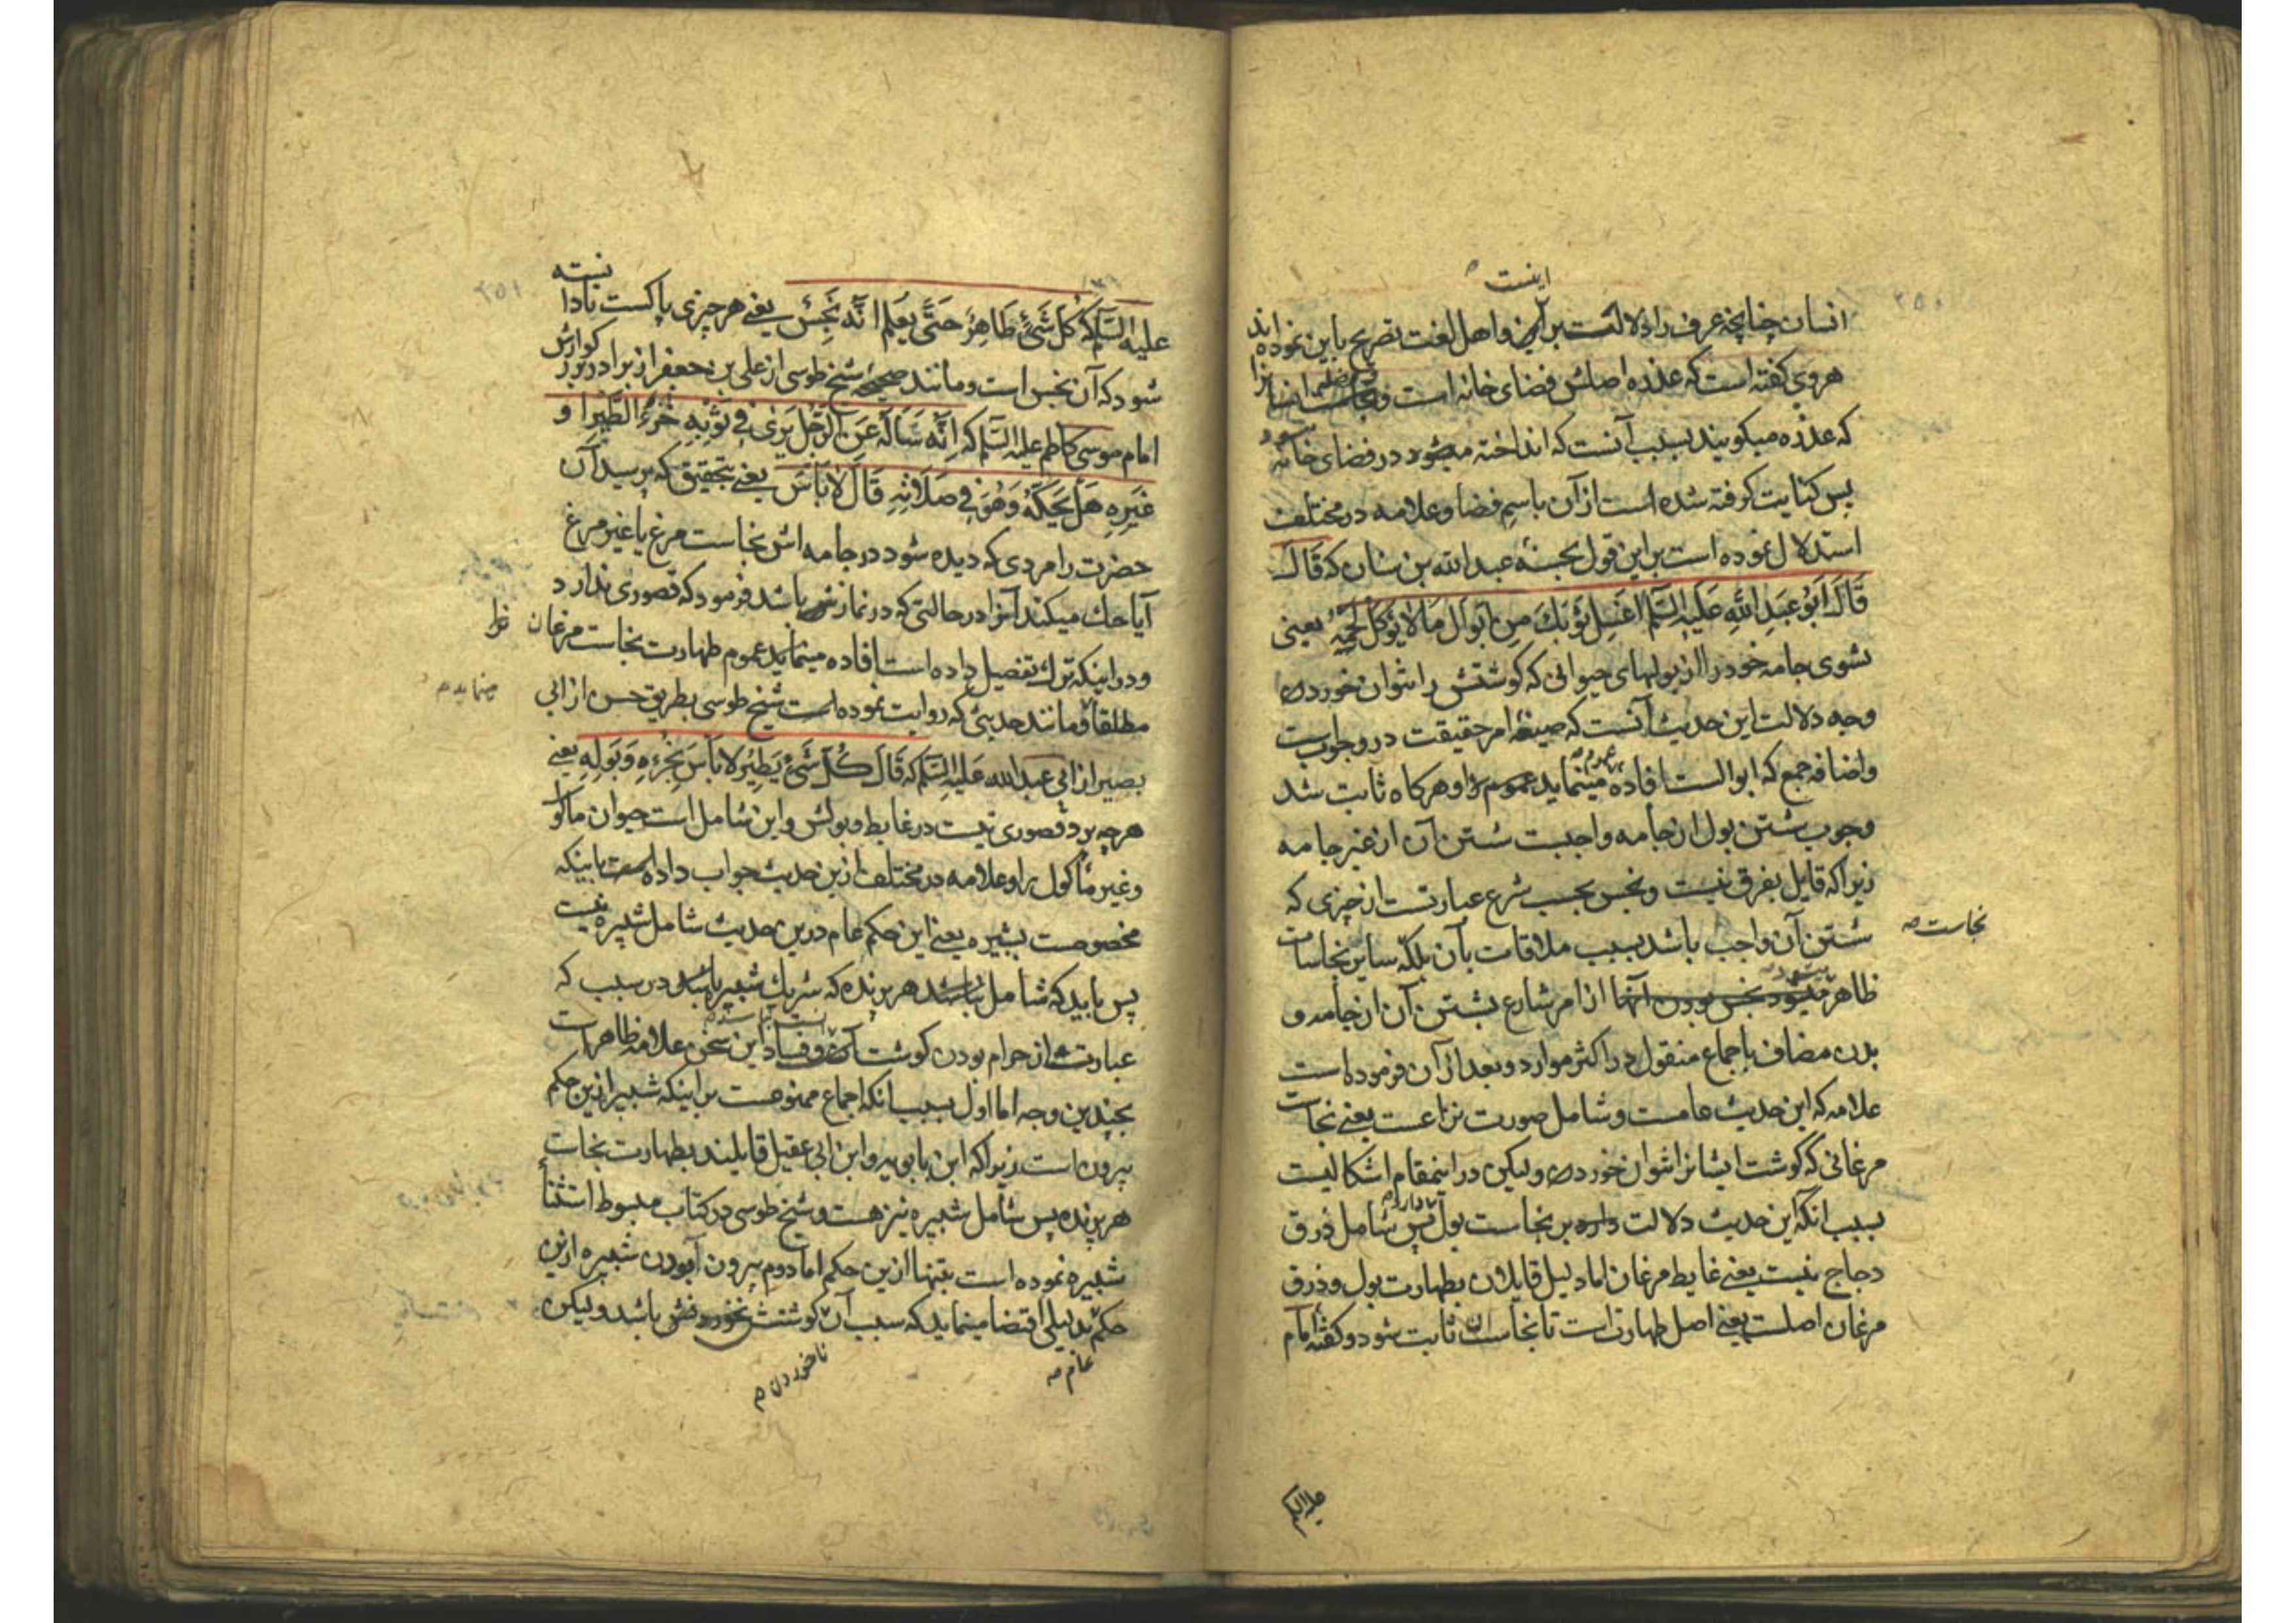 اینست
انسان چنانچه عرف را دلالت بر این و اهل لغت تصریح باین نموده‌اند
هروی گفته است که عذره اصلش فضای خانه است و
که عذره میکویند بسبب آنست که انداخته میشود در فضای خانه
پس کنایت کرفته شده است از آن باسم فضا و علامه در مختلف
استدلال نموده است بر این قول بحسنه عبد الله بن سنان که قَالَ
قَالَ اَبُو عَبدِ اللهِ عَلَیهِ السَّلَم اغسِل ثَوبَكَ مِن اَبوَالِ مَا لا یُؤکَلُ لَحمُهُ یعنی
بشوی جامه خود را از بولهای حیوانی که کوشتش را نتوان خوردن
وجه دلالت این حدیث آنست که صیغه امر حقیقت در وجوبست
و اضافه جمع که ابوالست افاده مینماید عموم را و هرکاه ثابت شد
وجوب شستن بول از جامه واجبست شستن آن از غیر جامه
زیرا که قایل بفرق نیست و نجس بحسب شرع عبارتست از چیزی که
شستن آن واجب باشد بسبب ملاقات بآن بلکه سایر نجاسات
نجاست صح
ظاهر میشود نجس بودن آنها از امر شارع بشستن آن از جامه و
بدن مضاف باجماع منقول در اکثر موارد و بعد از آن فرموده است
علامه که این حدیث عامست و شامل صورت نزاعست یعنی نجاست
مرغانی که کوشت ایشانرا نتوان خوردن و لیکن در اینمقام اشکالیست
بسبب انکه این حدیث دلالت دارد بر نجاست بول پس شامل ذرق
دجاج نیست یعنی غایط مرغان اما دلیل قایلان بطهارت بول و ذرق
مرغان اصلست یعنی اصل طهارتست تا نجاست آن ثابت شود و کفته امام
علیه السلم
علیه السَّلَم که کُلُّ شَیءٍ طَاهِرٌ حَتَّی یُعلَمَ اَنَّهُ نَجِسٌ یعنی هر چیزی پاکست تا دانسته
شود که آن نجس است و مانند صحیحه شیخ طوسی از علی بن جعفر از برادر بزرکوارش
امام موسی کاظم علیه السَّلَم که اِنَّه سَاَلَهُ عَنِ الرَّجُلِ یَرَی فِی ثَوبِهِ خُرءُ الطَّیرِ او
غَیرِهِ هَل یَحُکُّهُ وَهُوَ فِی صَلاتِهِ قَالَ لا بَاسَ یعنی بتحقیق که پرسید آن
حضرت را مردی که دیده شود در جامه اش نجاست مرغ یا غیر مرغ
آیا حك میکند آنرا در حالتی که در نمازش باشد فرمود که قصوری ندارد
و در اینکه ترك تفصیل داده است افاده مینماید عموم طهارت نجاست مرغان
مینماید
مطلقا و مانند حدیثی که روایت نموده است شیخ طوسی بطریق حسن از ابی
بصیر از ابی عبد الله عَلَیهِ السَّلَم که قَالَ کُلُّ شَیءٍ یَطِیرُ لا بَاسَ بِخُرءِهِ وَبَولِهِ یعنی
هر چه پرد قصوری نیست در غایط و بولش و این شامل است حیوان ماکول
و غیر ماکول را و علامه در مختلف ازین حدیث جواب داده است باینکه
مخصوصست بشپره یعنی این حکم عام درین حدیث شامل شپره نیست
پس باید که شامل نباشد هر پرنده که شریك شپره باشد در سبب که
عبارتست از حرام بودن کوشت آن و فساد این سخن علامه ظاهرست
بچندین وجه اما اول بسبب انکه اجماع ممنوعست بر اینکه شپره ازین حکم
بیرون است زیرا که ابن بابویه و ابن ابی عقیل قایلند بطهارت نجاست
هر پرنده پس شامل شپره نیز هست و شیخ طوسی در کتاب مبسوط استثنا
شپره نموده است بتنها ازین حکم اما دوم بیرون آبودن شپره ازین
حکم بدلیلی اقتضا مینماید که سبب آن کوشتش نخوردنش باشد و لیکن
عام صح
ناخوردن